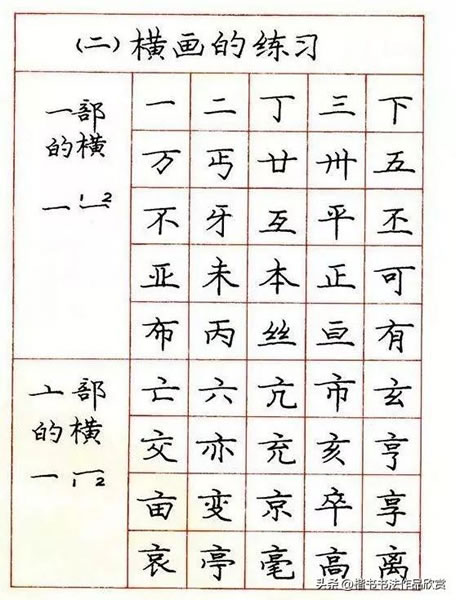 (二)横画的练习
一部
的横
一 1 2
一 二 丁 三 下
万 丐 廿 卅 五
不 牙 互 平 丕
亚 未 本 正 可
布 丙 丝 亘 有
亠部
的横
一 1 2
亡 六 亢 市 玄
交 亦 充 亥 亨
亩 变 京 卒 享
哀 亭 毫 高 离
头条@楷书书法作品欣赏